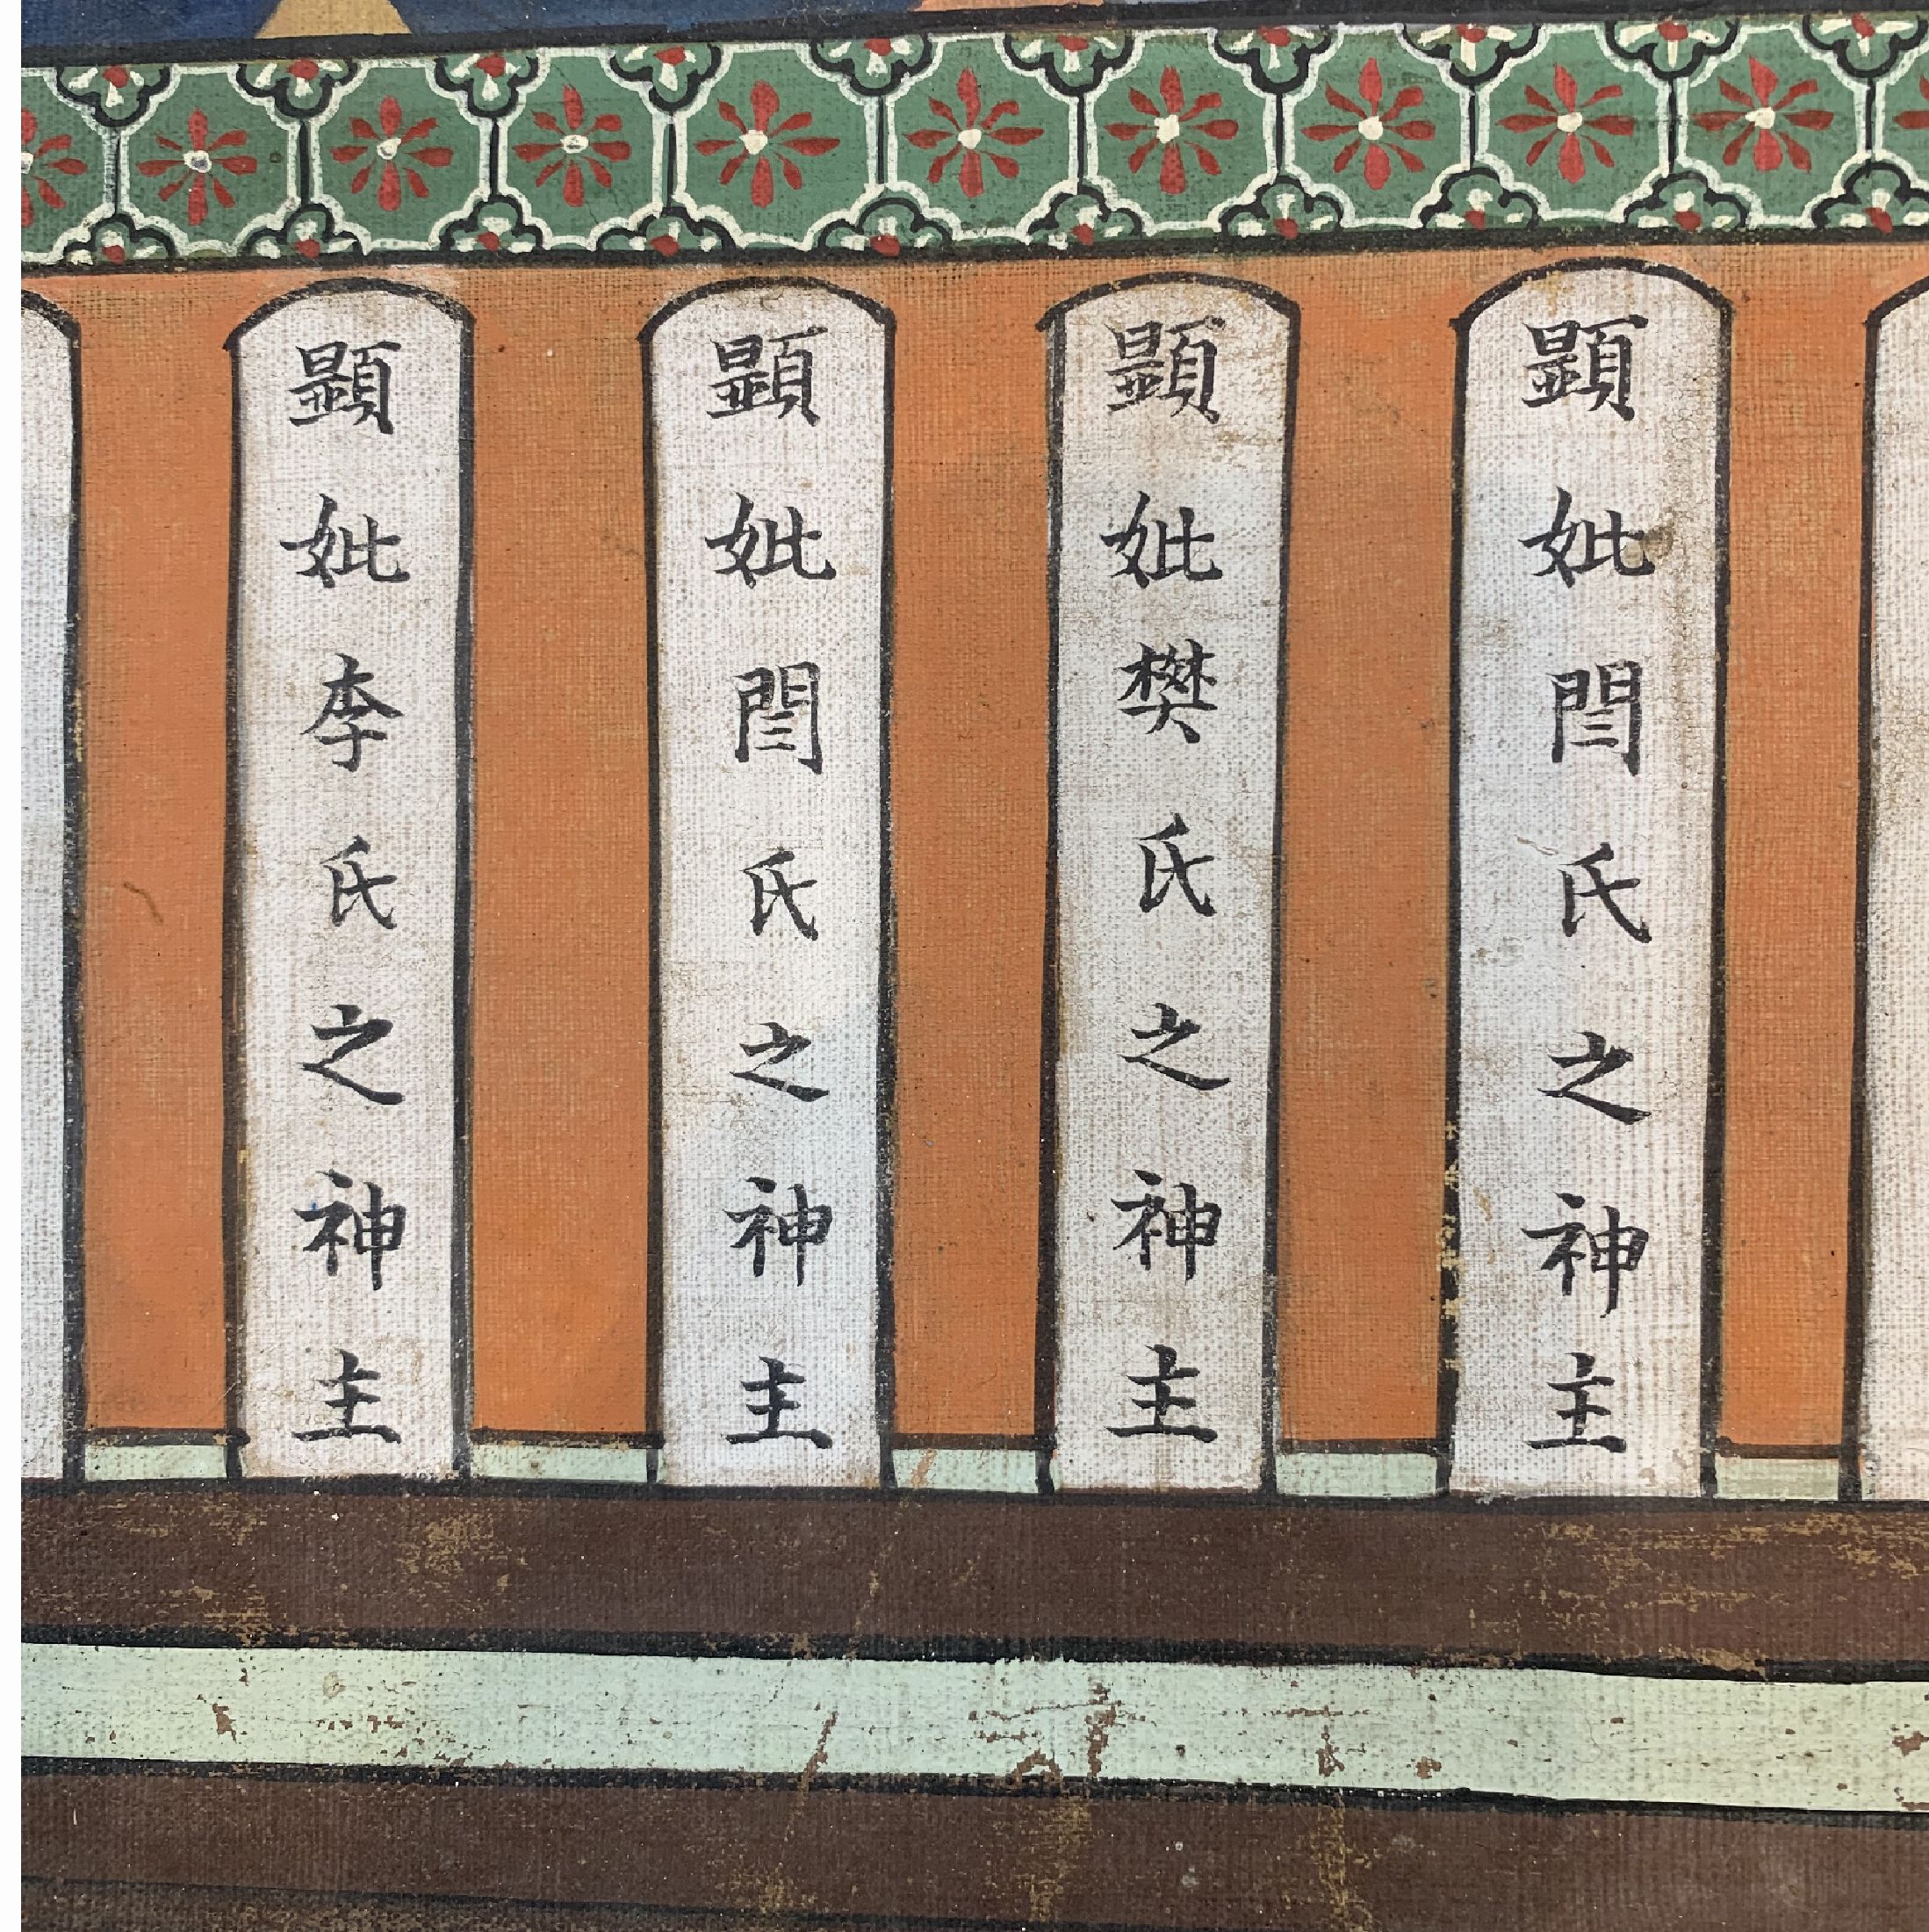 顕妣閆氏之神主
顕妣樊氏之神主
顕妣閆氏之神主
顕妣李氏之神主